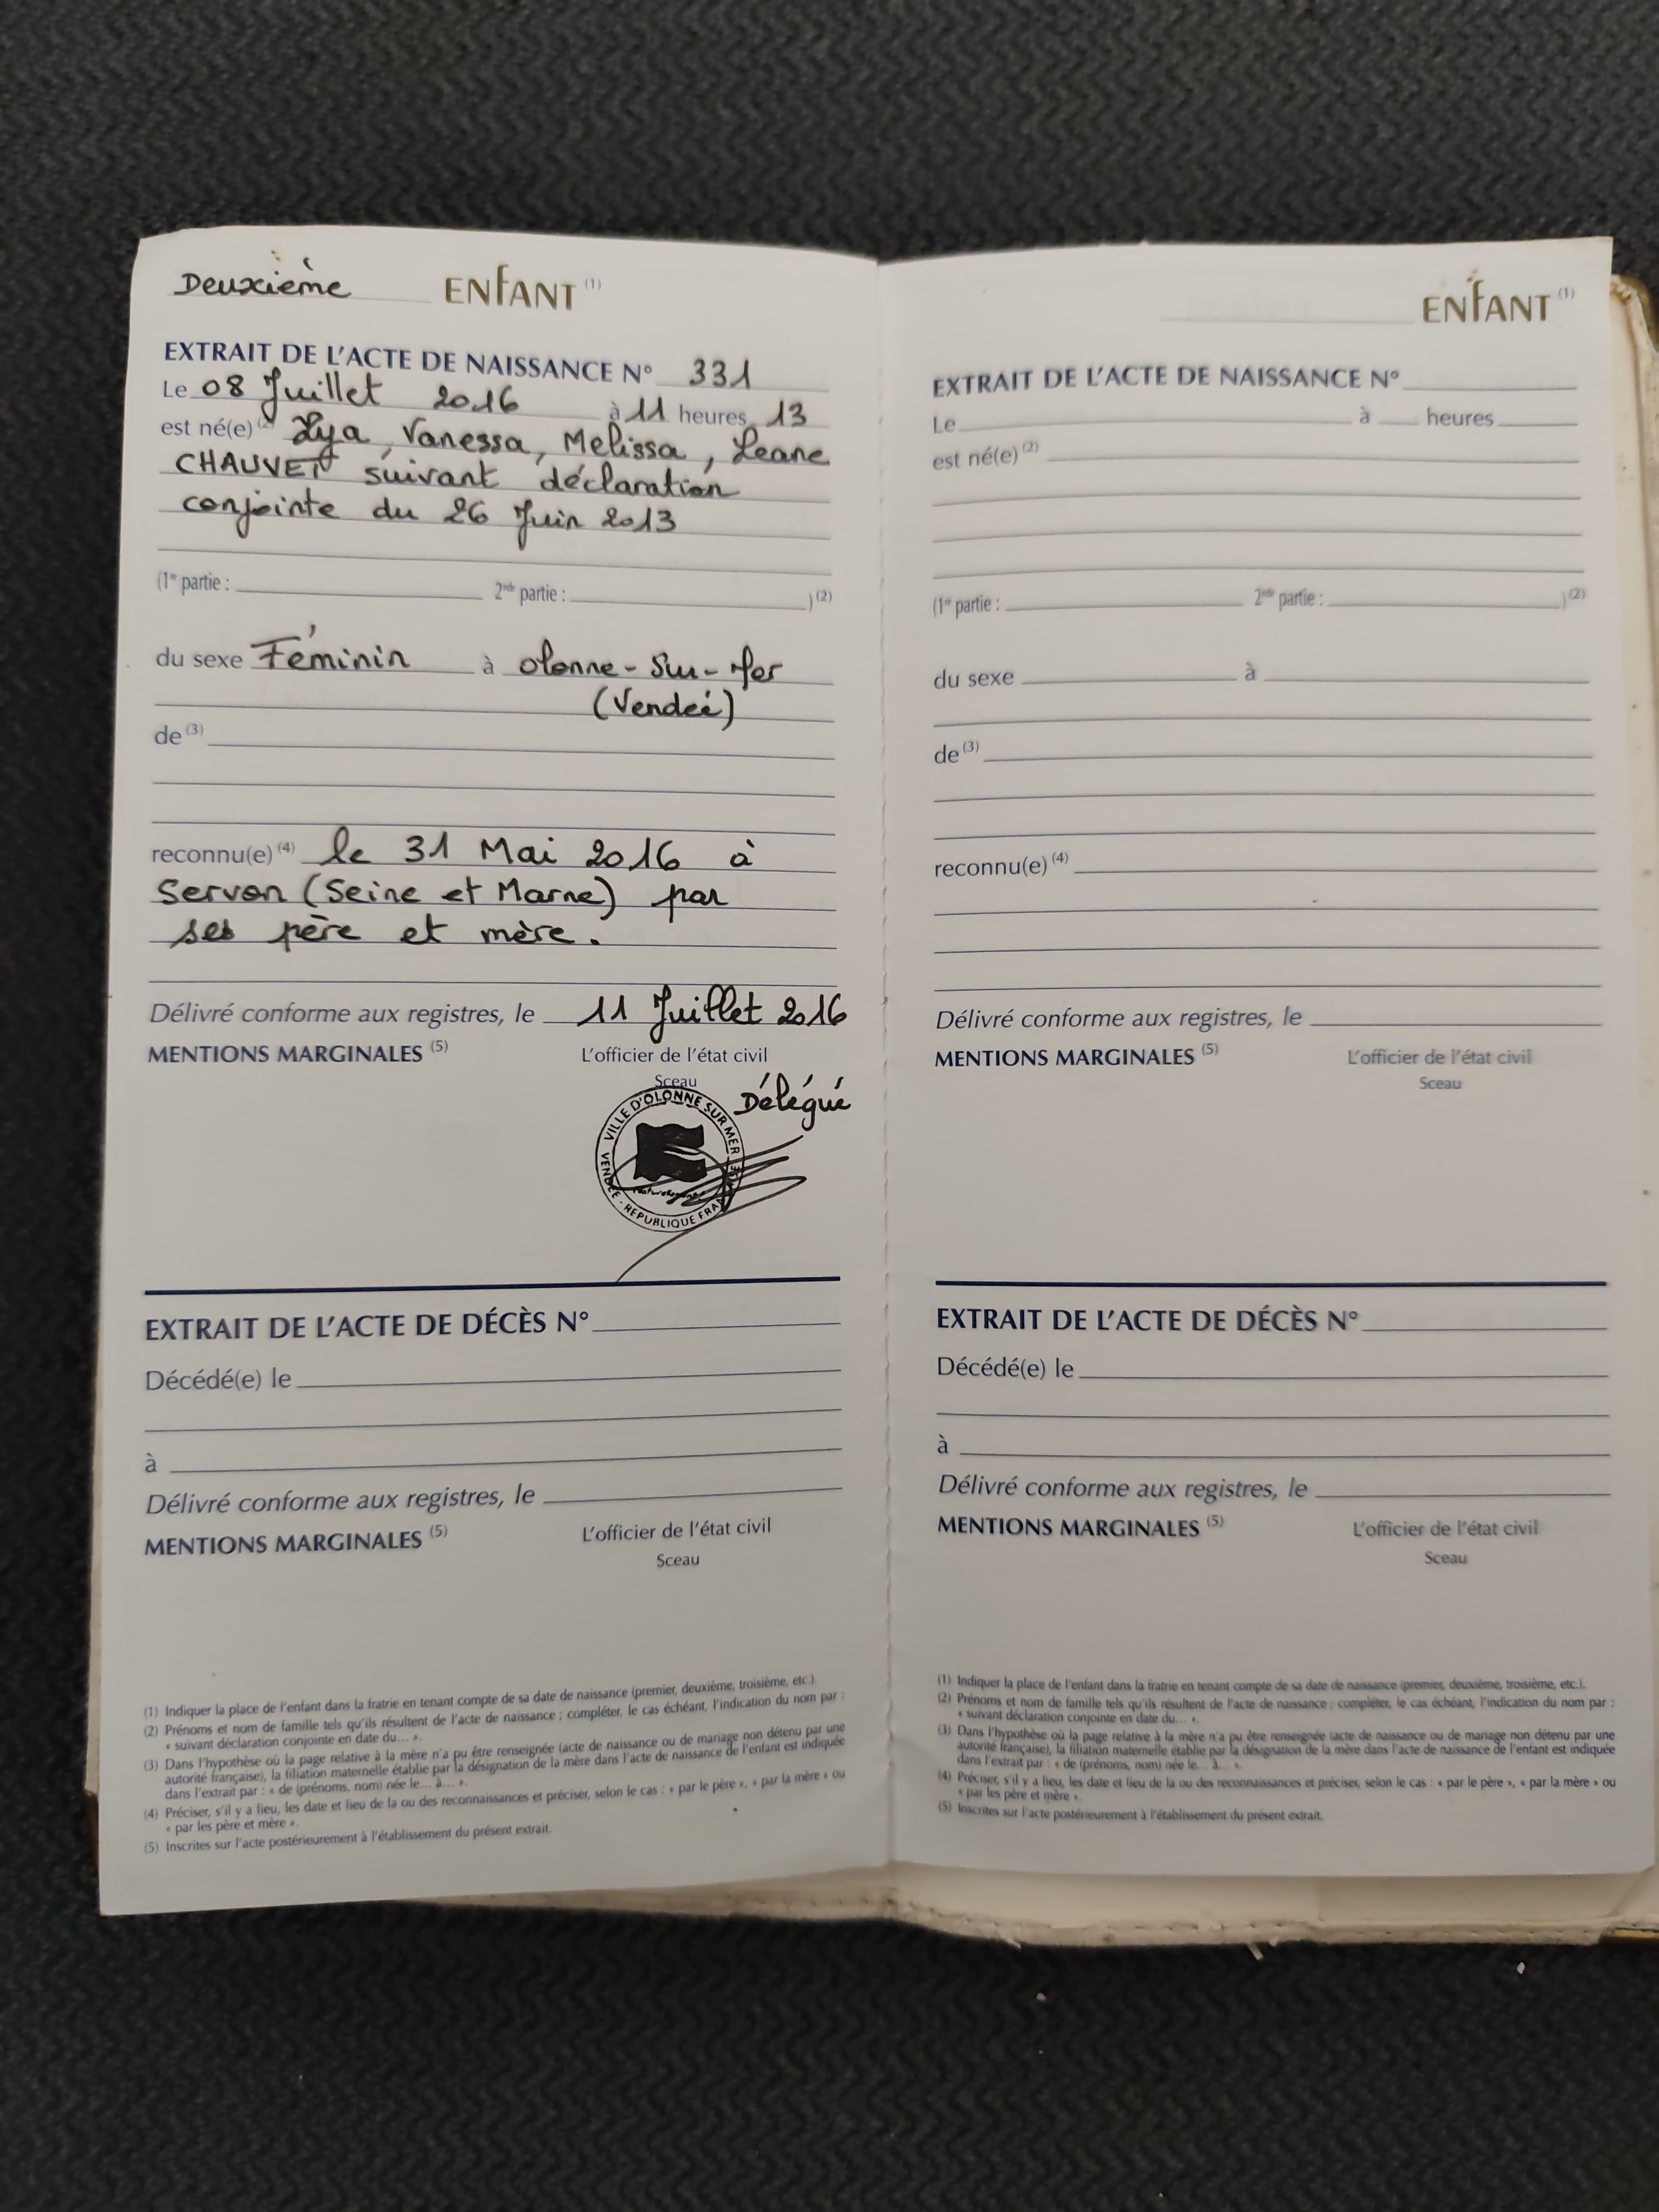 Deuxième ENFANT (1)
EXTRAIT DE L'ACTE DE NAISSANCE N° 331
Le 08 Juillet 2016 à 11 heures 13
est né(e) (2) Ilya, Vanessa, Melissa, Leane
CHAUVET suivant déclaration
conjointe du 26 Juin 2013
(1re partie : 2nde partie : ) (2)
du sexe Féminin à Olonne-Sur-Mer
(Vendée)
de (3)
reconnu(e) (4) le 31 Mai 2016 à
Servon (Seine et Marne) par
ses père et mère.
Délivré conforme aux registres, le 11 Juillet 2016
MENTIONS MARGINALES (5) L'officier de l'état civil
Sceau
Délégué
VILLE D'OLONNE SUR MER
VENDÉE - REPUBLIQUE FRA
EXTRAIT DE L'ACTE DE DÉCÈS N°
Décédé(e) le
à
Délivré conforme aux registres, le
MENTIONS MARGINALES (5) L'officier de l'état civil
Sceau
(1) Indiquer la place de l'enfant dans la fratrie en tenant compte de sa date de naissance (premier, deuxième, troisième, etc.).
(2) Prénoms et nom de famille tels qu'ils résultent de l'acte de naissance ; compléter, le cas échéant, l'indication du nom par :
« suivant déclaration conjointe en date du... ».
(3) Dans l'hypothèse où la page relative à la mère n'a pu être renseignée (acte de naissance ou de mariage non détenu par une
autorité française), la filiation maternelle établie par la désignation de la mère dans l'acte de naissance de l'enfant est indiquée
dans l'extrait par : « de (prénoms, nom) née le... à... ».
(4) Préciser, s'il y a lieu, les date et lieu de la ou des reconnaissances et préciser, selon le cas : « par le père », « par la mère » ou
« par les père et mère ».
(5) Inscrites sur l'acte postérieurement à l'établissement du présent extrait.
ENFANT (1)
EXTRAIT DE L'ACTE DE NAISSANCE N°
Le à heures
est né(e) (2)
(1re partie : 2nde partie : ) (2)
du sexe à
de (3)
reconnu(e) (4)
Délivré conforme aux registres, le
MENTIONS MARGINALES (5) L'officier de l'état civil
Sceau
EXTRAIT DE L'ACTE DE DÉCÈS N°
Décédé(e) le
à
Délivré conforme aux registres, le
MENTIONS MARGINALES (5) L'officier de l'état civil
Sceau
(1) Indiquer la place de l'enfant dans la fratrie en tenant compte de sa date de naissance (premier, deuxième, troisième, etc.).
(2) Prénoms et nom de famille tels qu'ils résultent de l'acte de naissance ; compléter, le cas échéant, l'indication du nom par :
« suivant déclaration conjointe en date du... ».
(3) Dans l'hypothèse où la page relative à la mère n'a pu être renseignée (acte de naissance ou de mariage non détenu par une
autorité française), la filiation maternelle établie par la désignation de la mère dans l'acte de naissance de l'enfant est indiquée
dans l'extrait par : « de (prénoms, nom) née le... à... ».
(4) Préciser, s'il y a lieu, les date et lieu de la ou des reconnaissances et préciser, selon le cas : « par le père », « par la mère » ou
« par les père et mère ».
(5) Inscrites sur l'acte postérieurement à l'établissement du présent extrait.